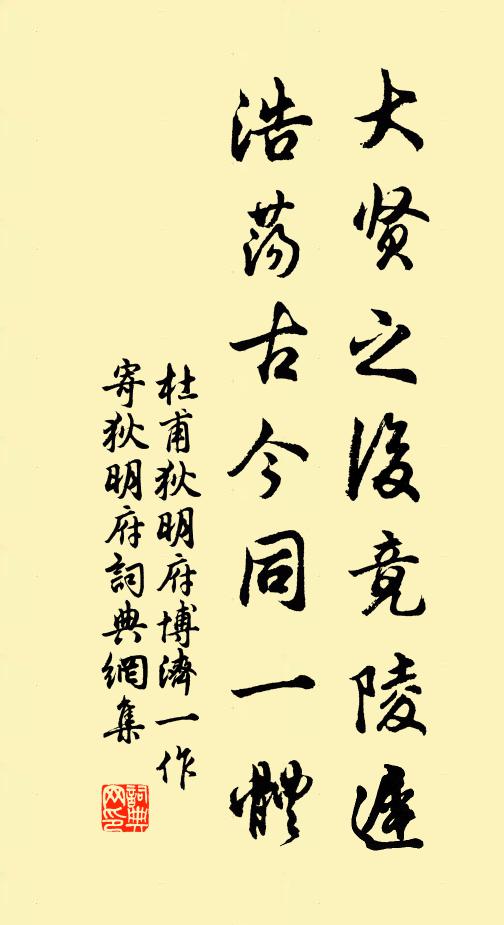 大贤之後竟陵遲
浩荡古今同一體
杜甫狄明府博濟一作
寄狄明府詞典網集
詞典网印